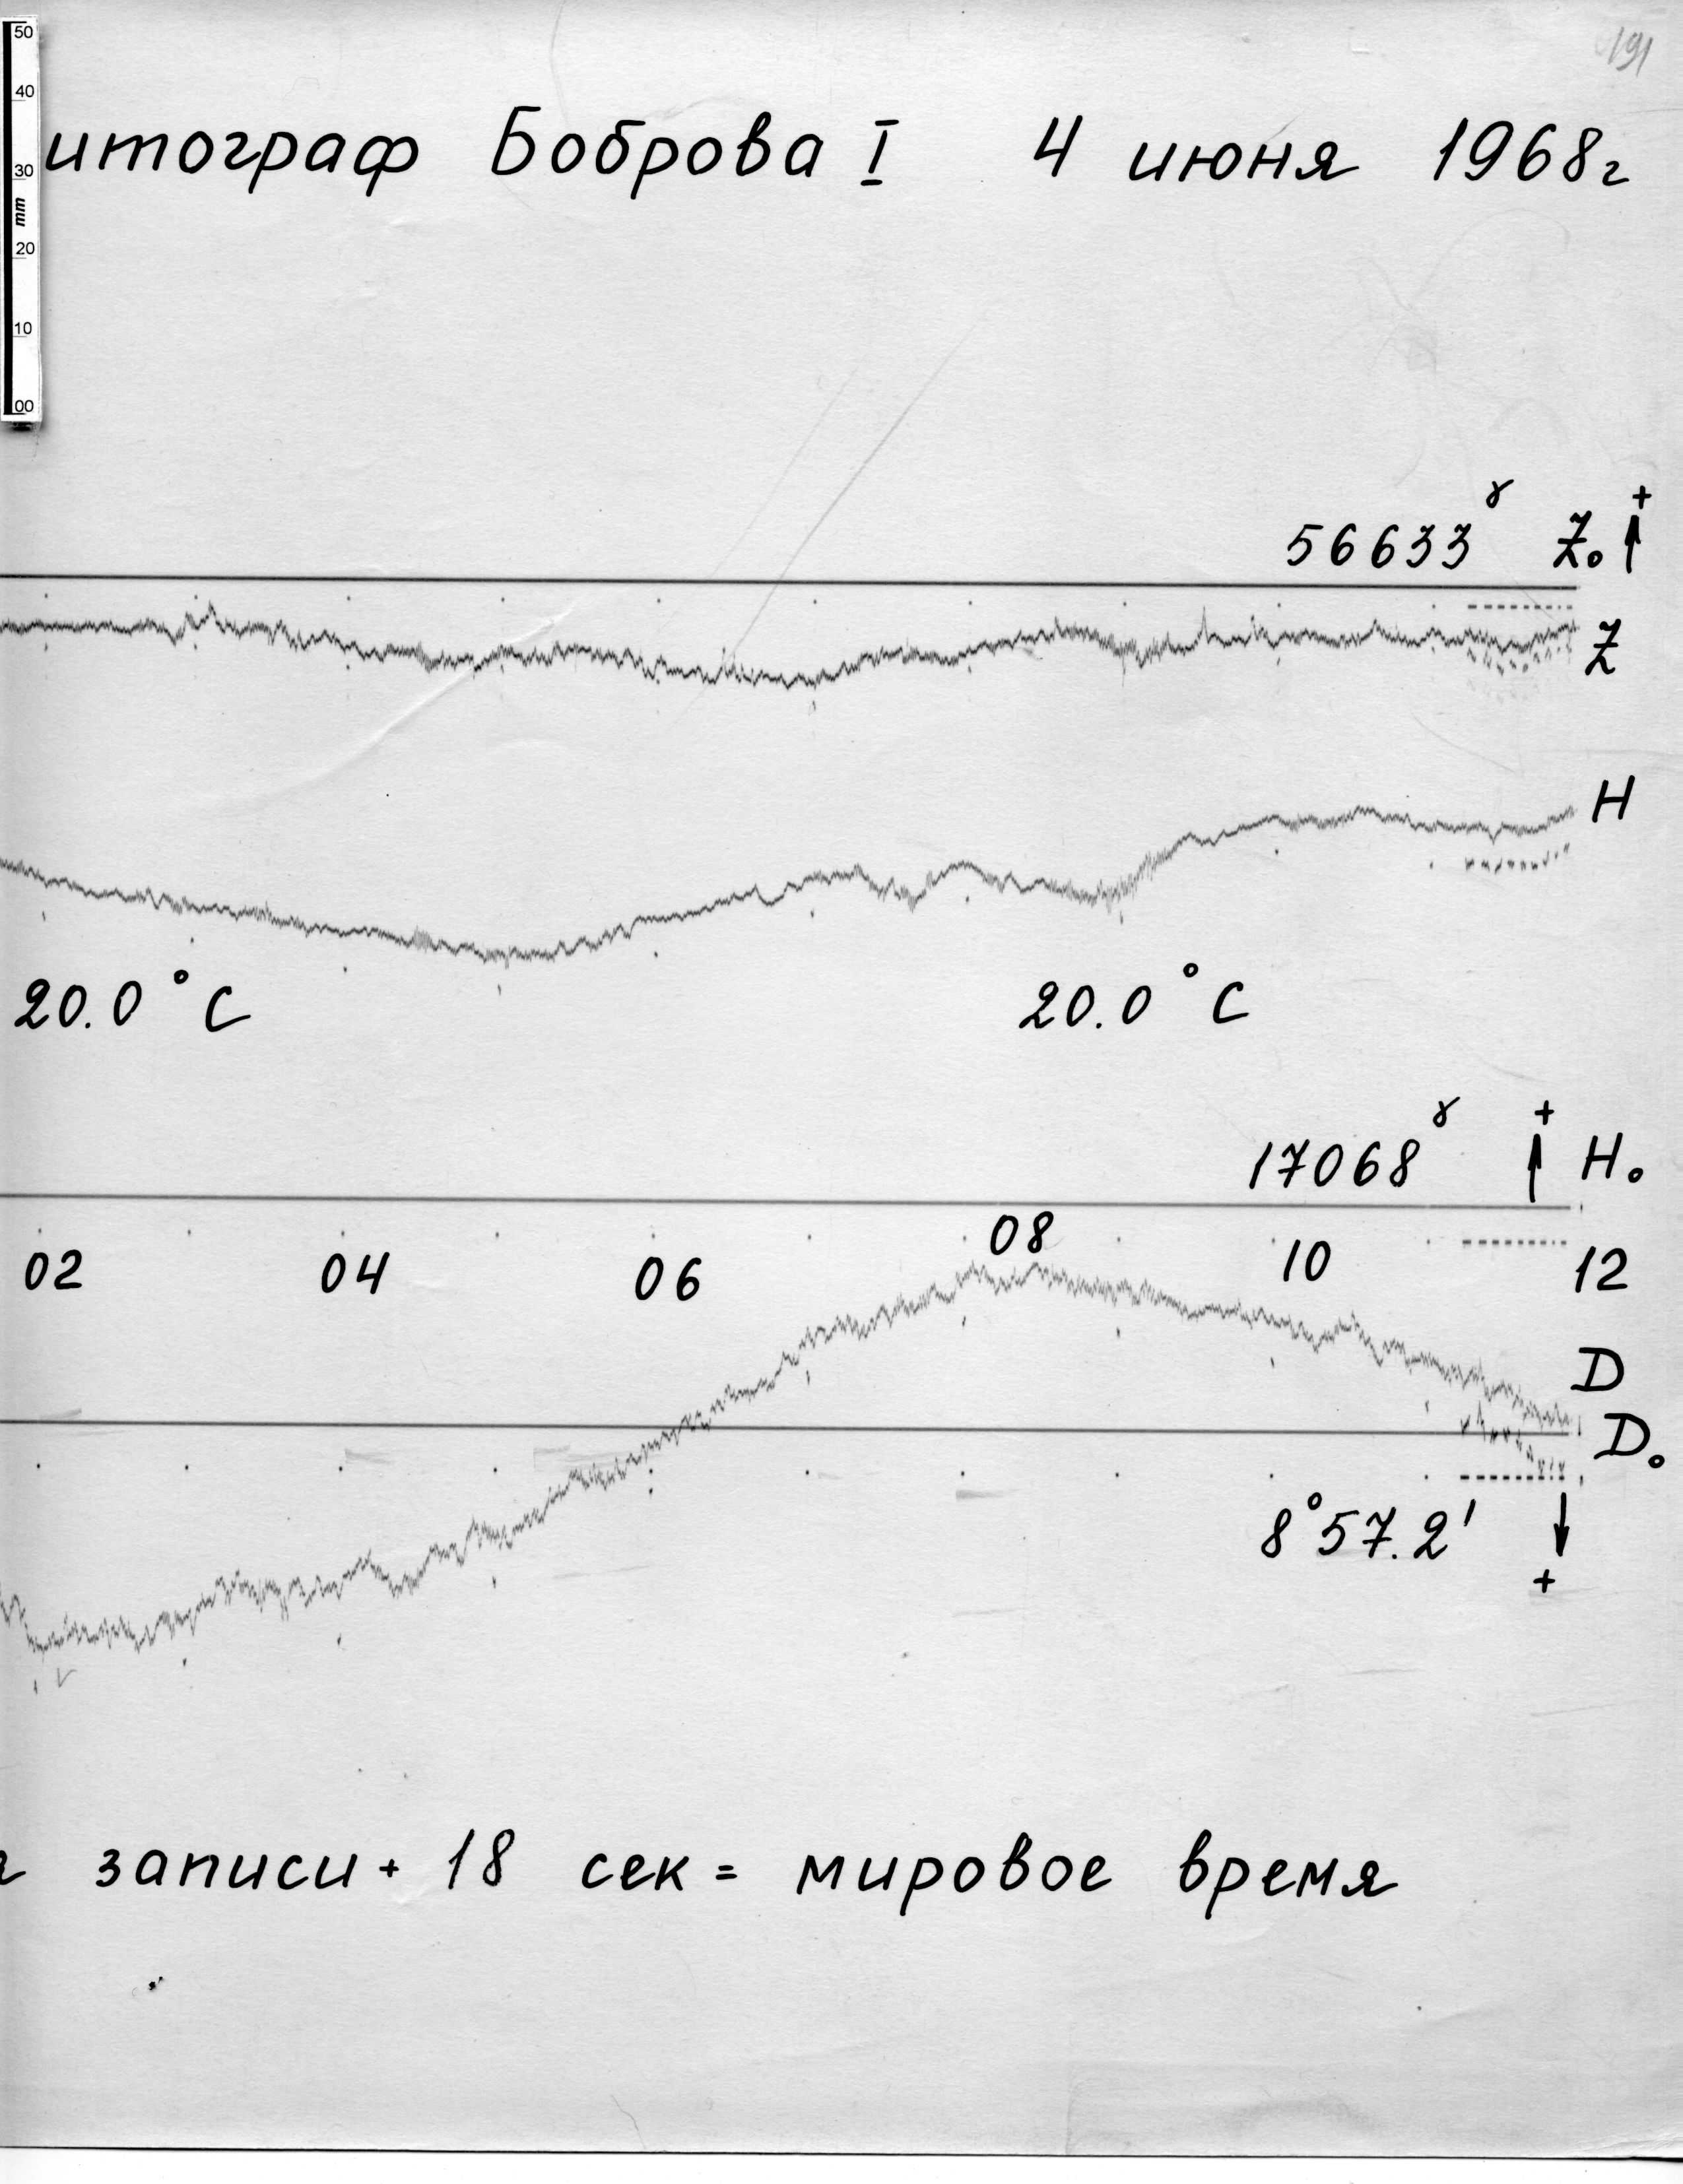 191
50
40
30
mm
20
10
00
итограф Боброва I 4 июня 1968г
56633ˠ Z₀ +
Z
H
20.0°C 20.0°C
17068ˠ + H₀
02 04 06 08 10 12
D
D₀
8°57.2′
+
записи + 18 сек = мировое время